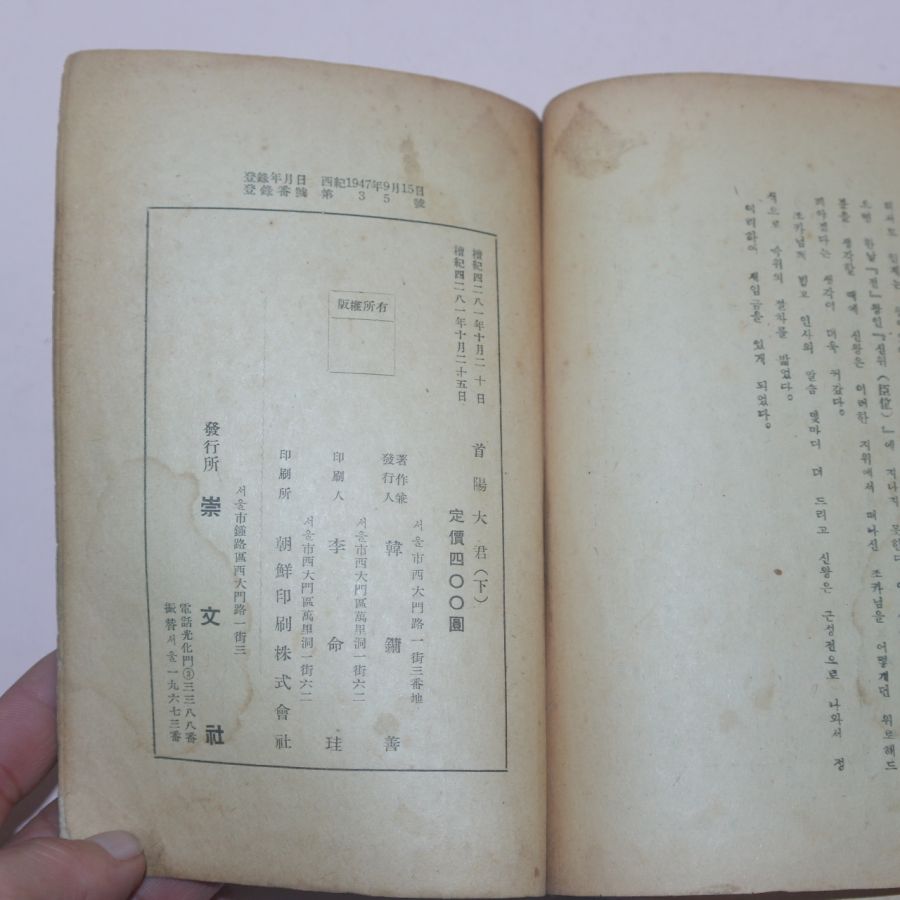 이리하여 새임금을 있게 되었다。
색으로 사위의 절차를 밟었다。
조카님께 법고 인사의 말슴 몇마디 더 드리고 신왕은 근정전으로 나와서 정
분을 생각할 때에 신왕은 이러한 지위에서 떠나신 조카님을 어떻게던 위로해드
登錄年月日 西紀1947年9月15日
登錄番號 第35號
檀紀四二八一年十月二十日
檀紀四二八一年十月二十五日
首陽大君(下)
定價四〇〇圓
版權所有
서울市西大門路一街三番地
著作兼
發行人 韓鏞善
서울市西大門區萬里洞一街六二
印刷人 李命珪
서울市西大門區萬里洞一街六二
印刷所 朝鮮印刷株式會社
서울市鍾路區西大門路一街三
發行所 崇文社
電話光化門③三三八八番
振替서울一九六七三番